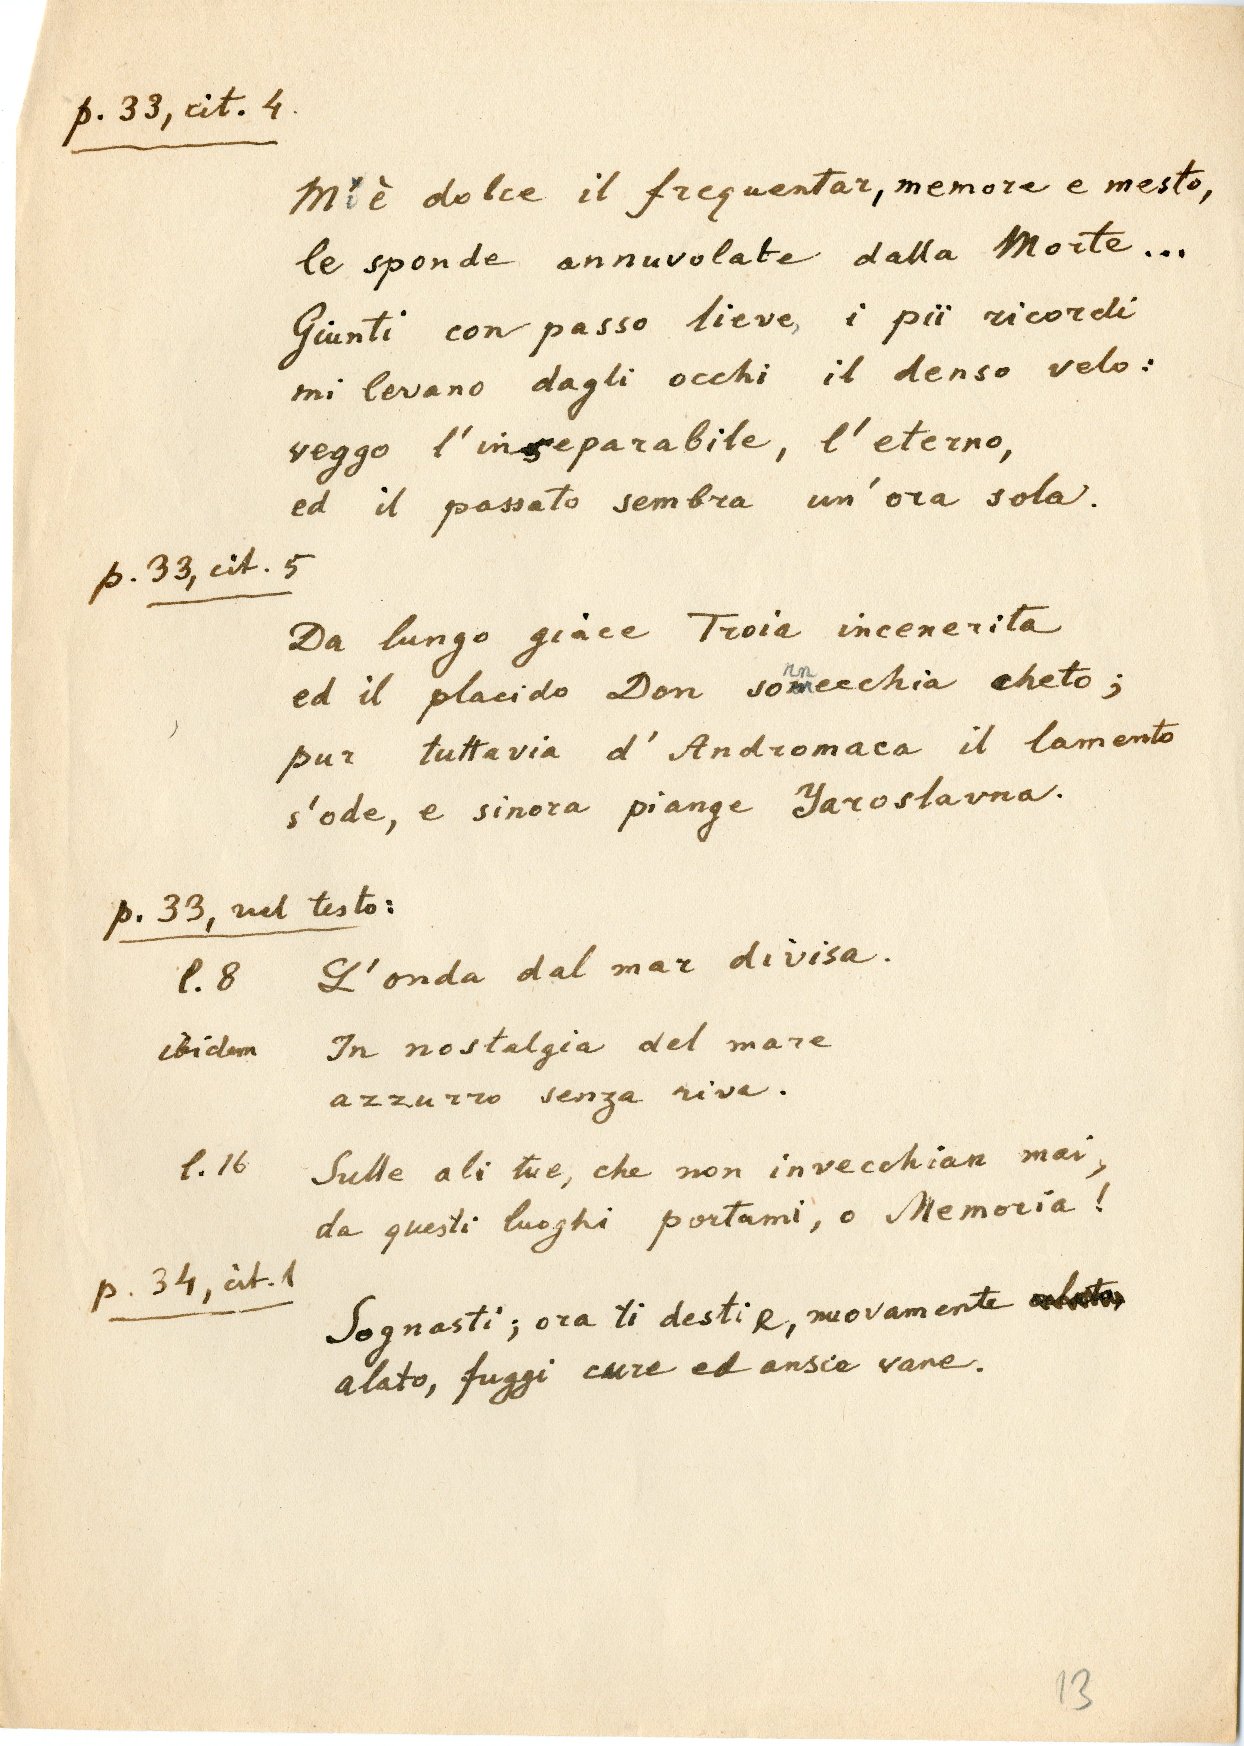 p. 33, cit. 4.
M'è dolce il frequentar, memore e mesto,
le sponde annuvolate dalla Morte...
Giunti con passo lieve, i pii ricordi
mi levano dagli occhi il denso velo:
veggo l'inseparabile, l'eterno,
ed il passato sembra un'ora sola.
p. 33, cit. 5
Da lungo giace Troia incenerita
ed il placido Don sonnecchia cheto;
pur tuttavia d'Andromaca il lamento
s'ode, e sinora piange Yaroslavna.
p. 33, nel testo:
l. 8 L'onda dal mar divisa.
ibidem In nostalgia del mare
azzurro senza riva.
l. 16 Sulle ali tue, che non invecchian mai,
da questi luoghi portami, o Memoria!
p. 34, cit. 1
Sognasti; ora ti desti e, nuovamente alato,
alato, fuggi cure ed ansie vane.
13